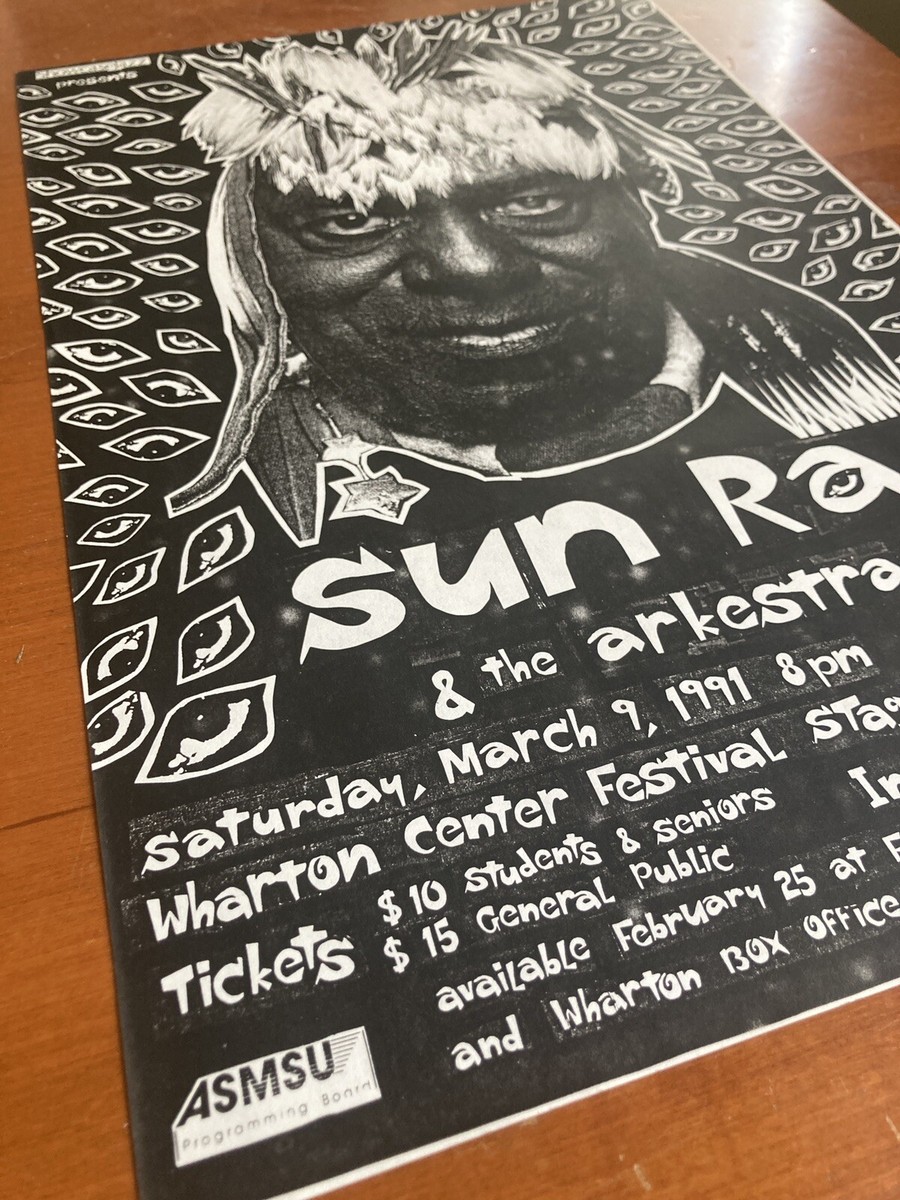 presents
Sun Ra
& the arkestra
Saturday, March 9, 1991 8pm
Wharton Center Festival
Tickets $10 students & seniors
$15 General Public
available February 25 at
and Wharton Box Office
ASMSU
Programming Board